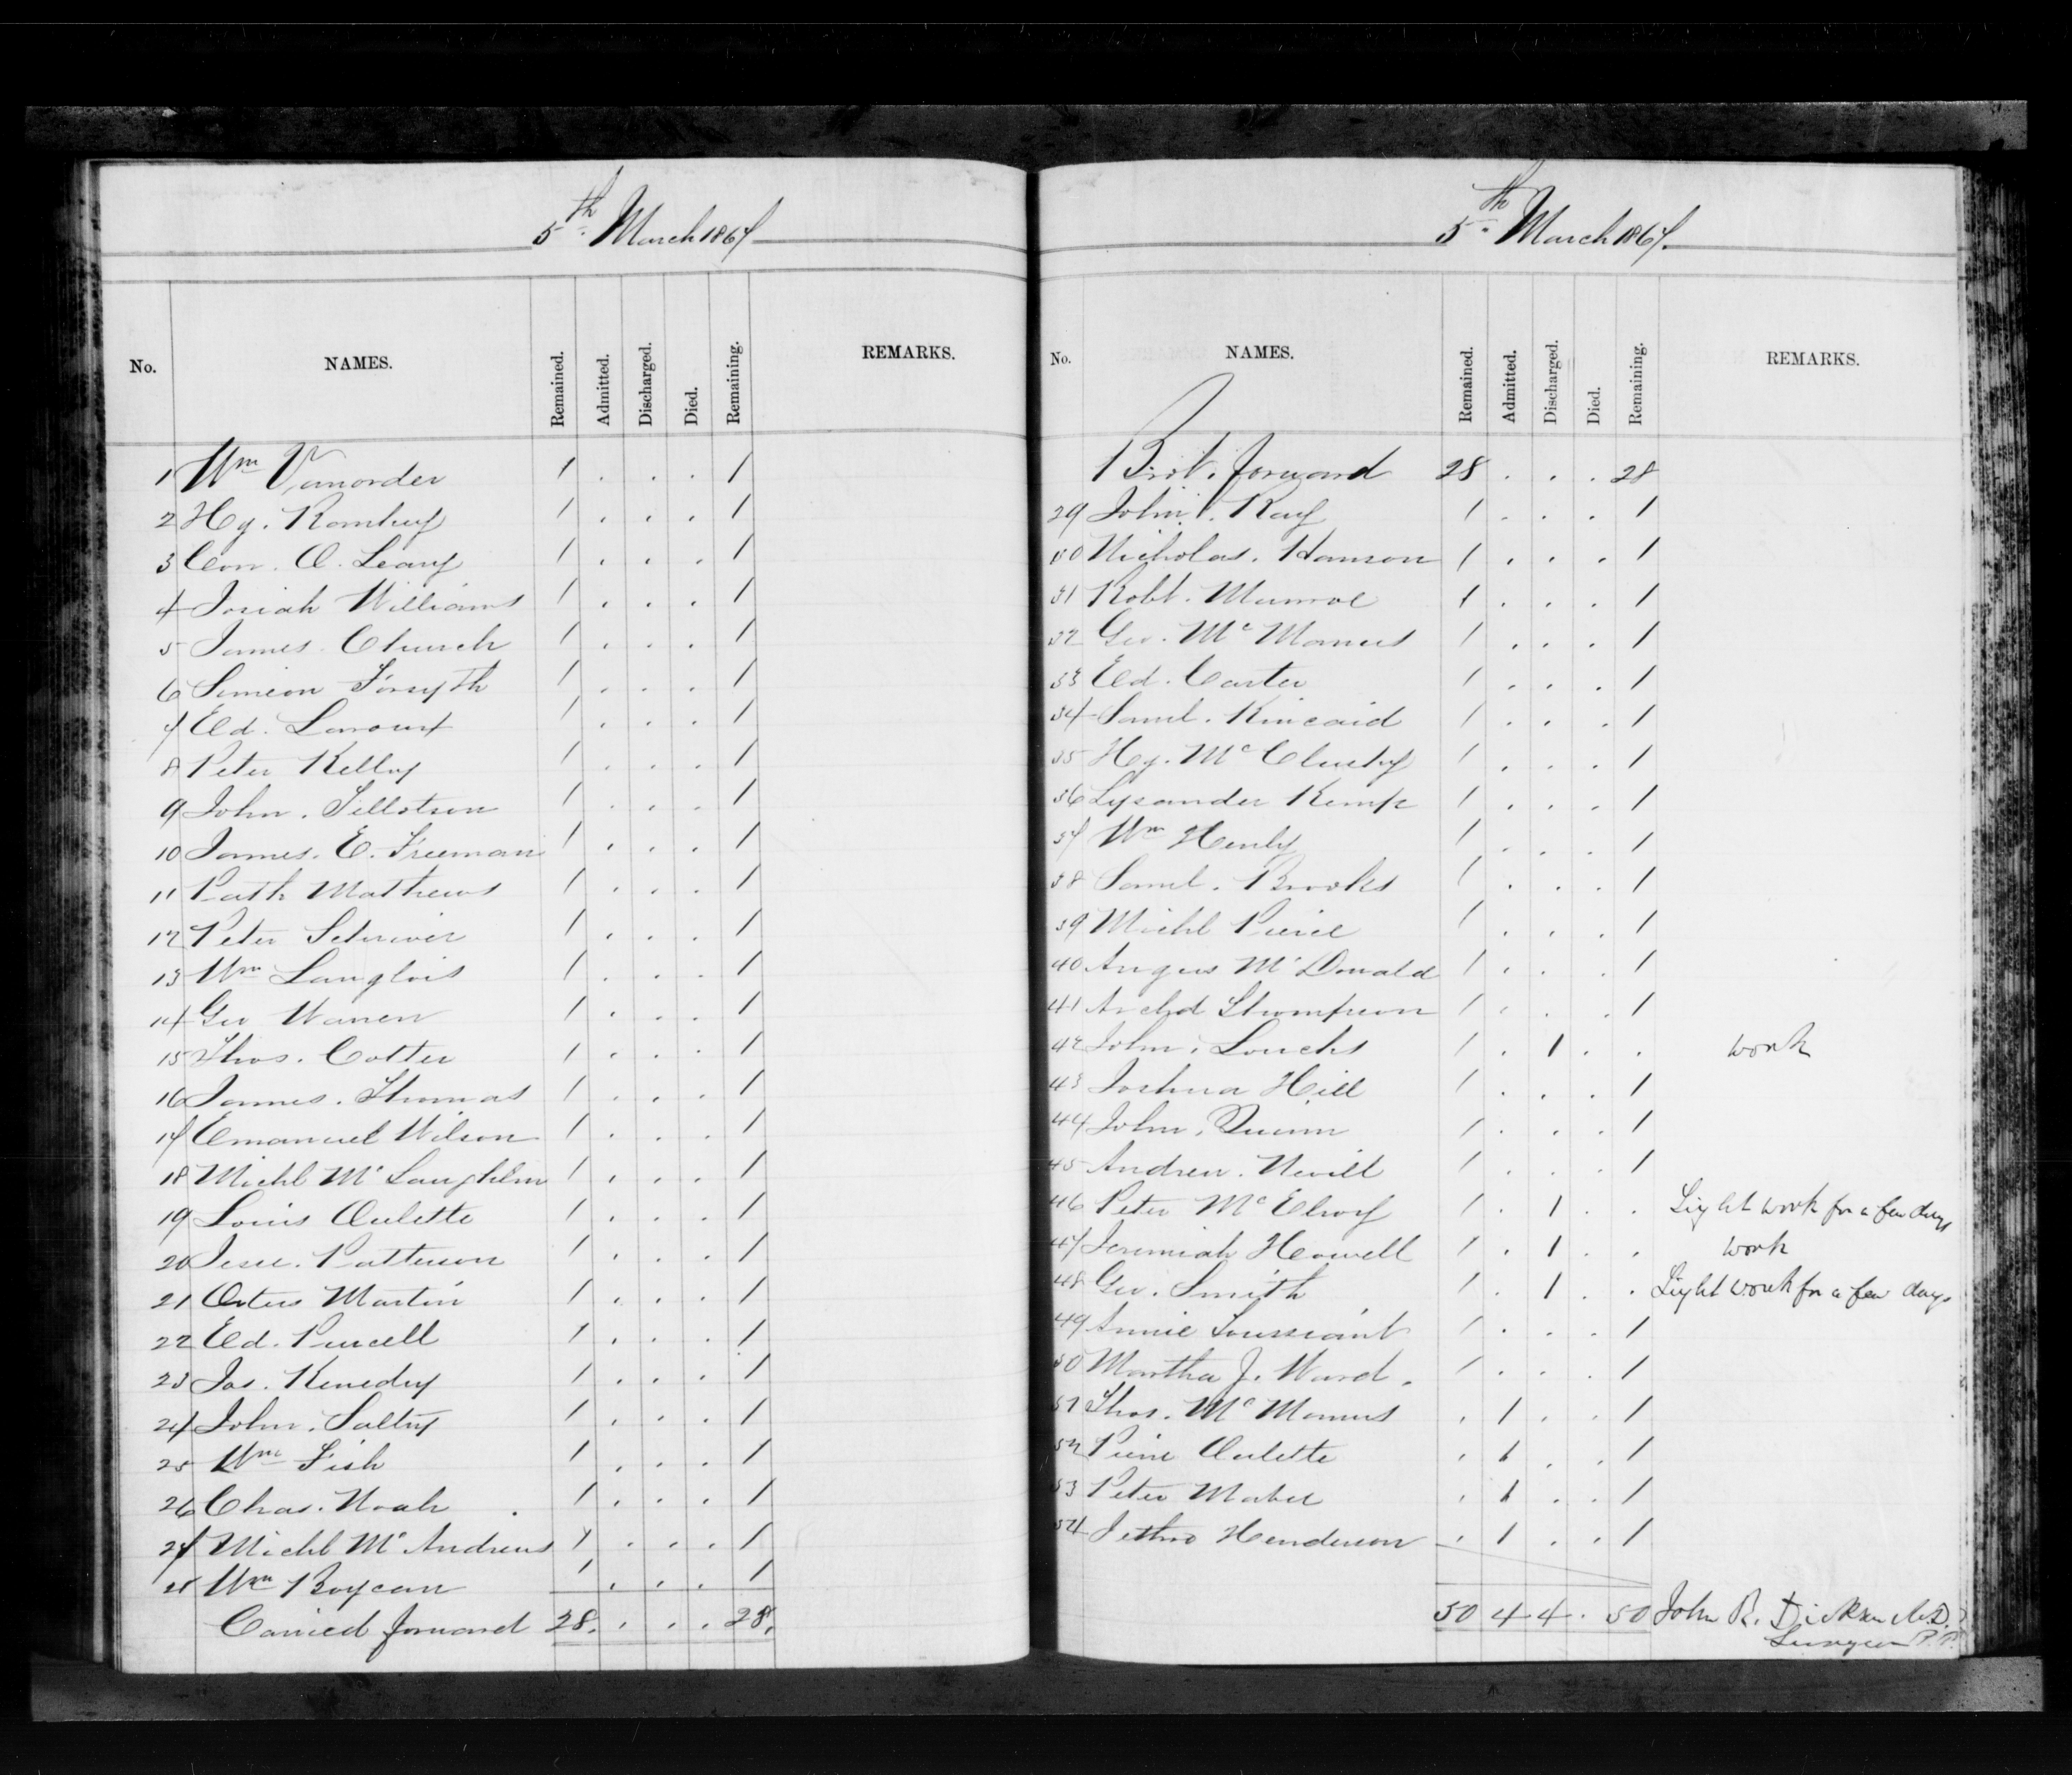 5th March 1867
No. NAMES. Remained. Admitted. Discharged. Died. Remaining. REMARKS.
1 Wm Vanorder 1 . . . 1
2 Hy. Romhey 1 . . . 1
3 Con. O. Leary 1 . . . 1
4 Josiah Williams 1 . . . 1
5 James Church 1 . . . 1
6 Simeon Forsyth 1 . . . 1
7 Ed. Laroux 1 . . . 1
8 Peter Kelley 1 . . . 1
9 John. Tillotson 1 . . . 1
10 James. E. Freeman 1 . . . 1
11 Patk Mathews 1 . . . 1
12 Peter Schriver 1 . . . 1
13 Wm Langlois 1 . . . 1
14 Geo Warren 1 . . . 1
15 Thos. Cotter 1 . . . 1
16 James. Thomas 1 . . . 1
17 Emanuel Wilson 1 . . . 1
18 Michl Mc Laughlin 1 . . . 1
19 Louis Oulette 1 . . . 1
20 Jesse. Patterson 1 . . . 1
21 Martin 1 . . . 1
22 Ed. Purcell 1 . . . 1
23 Jas. Kenedy 1 . . . 1
24 John. Saltry 1 . . . 1
25 Wm Fish 1 . . . 1
26 Chas. Noah . 1 . . . 1
27 Michl Mc Andrews 1 . . . 1
28 Wm Boycan 1 . . . 1
Carried forward 28. . . . 28.
5th March 1867.
No. NAMES. Remained. Admitted. Discharged. Died. Remaining. REMARKS.
Brot. forward 28 . . . 28
29 John. Ray 1 . . . 1
30 Nicholas. Hanson 1 . . . 1
31 Robt. Munroe 1 . . . 1
32 Geo. Mc Manus 1 . . . 1
33 Ed. Carter 1 . . . 1
34 Saml. Kincaid 1 . . . 1
35 Hy. Mc Clusky 1 . . . 1
36 Lysander Kemp 1 . . . 1
37 Wm Henly 1 . . . 1
38 Saml. Brooks 1 . . . 1
39 Michl Pierce 1 . . . 1
40 Angus Mc Donald 1 . . . 1
41 Archd Thompson 1 . . . 1
42 John. Loucks 1 . 1 . . work
43 Joshua Hill 1 . . . 1
44 John. Quinn 1 . . . 1
45 Andrew. Nevill 1 . . . 1
46 Peter Mc Elroy 1 . 1 . . Light work for a few days
47 Jeremiah Howell 1 . 1 . . work
48 Geo. Smith 1 . 1 . . Light work for a few days
49 Annie Toussaint 1 . . . 1
50 Martha J. Ward. 1 . . . 1
51 Thos. Mc Manus . 1 . . 1
52 Pierre Oulette . 1 . . 1
53 Peter Maber . 1 . . 1
54 Jethro Henderson . 1 . . 1
50 4 4 . 50 John R. Dickson M.D.
Surgeon P.P.